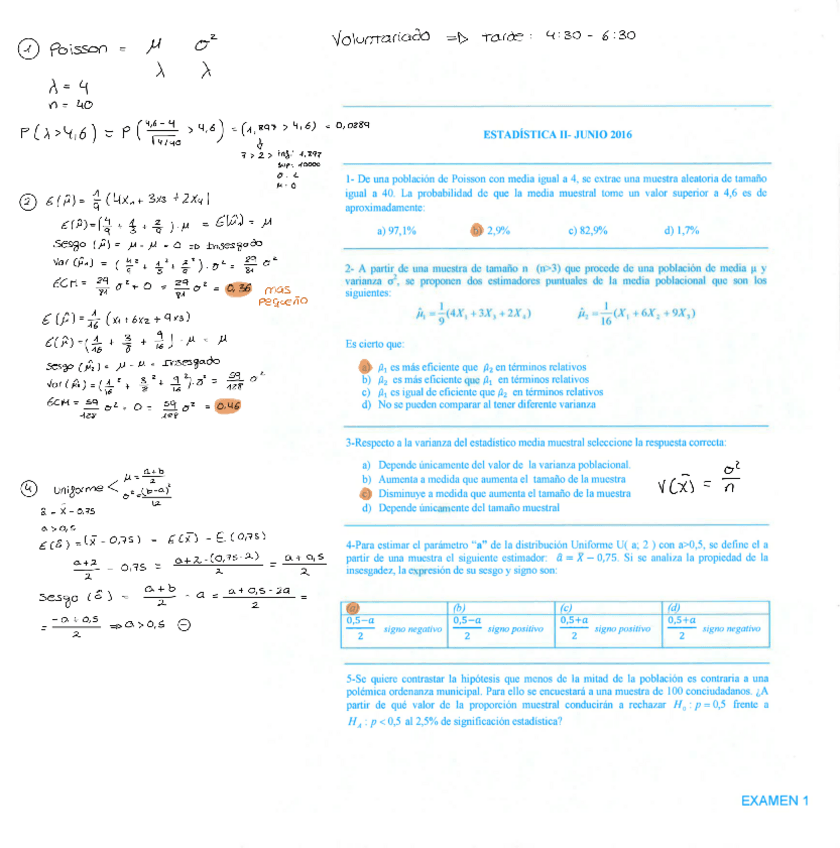 Voluntariado => Tarde: 4:30 - 6:30
① Poisson = μ σ²
λ λ
λ = 4
n = 40
P(λ>4,6) = P(4,6-4/√4/40 > 4,6) = (1,897 > 4,6) = 0,0289
7 > 2 > inf: 1,897
sup: 10000
σ: 1
μ: 0
② E(μ̂) = 1/9 (4x1 + 3x3 + 2x4)
E(μ̂) = (4/9 + 1/3 + 2/9) · μ = E(μ̂1) = μ
Sesgo (μ̂) = μ - μ = 0 => Insesgado
Var (μ̂1) = (4/9² + 1/3² + 2/9²) · σ² = 29/81 σ²
ECM = 29/81 σ² + 0 = 29/81 σ² = 0,36 más pequeño
E(μ̂) = 1/16 (x1 + 6x2 + 9x3)
E(μ̂) = (1/16 + 3/8 + 9/16) · μ = μ
Sesgo (μ̂2) = μ - μ = Insesgado
Var (μ̂) = (1/16² + 3/8² + 9/16²) · σ² = 59/128 σ²
ECM = 59/128 σ² + 0 = 59/128 σ² = 0,46
④ Uniforme < μ = a+b/2
σ² = (b-a)²/12
â = X̄ - 0,75
a > 0,5
E(â) = (X̄ - 0,75) = E(X̄) - E.(0,75)
a+2/2 - 0,75 = a+2-(0,75·2)/2 = a+0,5/2
Sesgo (â) = a+b/2 - a = a+0,5-2a/2 =
= -a+0,5/2 => a>0,5 ⊖
ESTADÍSTICA II- JUNIO 2016
1- De una población de Poisson con media igual a 4, se extrae una muestra aleatoria de tamaño
igual a 40. La probabilidad de que la media muestral tome un valor superior a 4,6 es de
aproximadamente:
a) 97,1% b) 2,9% c) 82,9% d) 1,7%
2- A partir de una muestra de tamaño n (n>3) que procede de una población de media μ y
varianza σ², se proponen dos estimadores puntuales de la media poblacional que son los
siguientes:
μ̂₁ = 1/9 (4X₁ + 3X₃ + 2X₄) μ̂₂ = 1/16 (X₁ + 6X₂ + 9X₃)
Es cierto que:
a) μ̂₁ es más eficiente que μ̂₂ en términos relativos
b) μ̂₂ es más eficiente que μ̂₁ en términos relativos
c) μ̂₁ es igual de eficiente que μ̂₂ en términos relativos
d) No se pueden comparar al tener diferente varianza
3-Respecto a la varianza del estadístico media muestral seleccione la respuesta correcta:
a) Depende únicamente del valor de la varianza poblacional.
b) Aumenta a medida que aumenta el tamaño de la muestra
c) Disminuye a medida que aumenta el tamaño de la muestra
d) Depende únicamente del tamaño muestral
V(X̄) = σ²/n
4-Para estimar el parámetro "a" de la distribución Uniforme U( a; 2 ) con a>0,5, se define el a
partir de una muestra el siguiente estimador: â = X̄ - 0,75. Si se analiza la propiedad de la
insesgadez, la expresión de su sesgo y signo son:
(a) (b) (c) (d)
0,5-a/2 signo negativo 0,5-a/2 signo positivo 0,5+a/2 signo positivo 0,5+a/2 signo negativo
5-Se quiere contrastar la hipótesis que menos de la mitad de la población es contraria a una
polémica ordenanza municipal. Para ello se encuestará a una muestra de 100 conciudadanos. ¿A
partir de qué valor de la proporción muestral conducirán a rechazar H₀ : p = 0,5 frente a
H_A : p < 0,5 al 2,5% de significación estadística?
EXAMEN 1